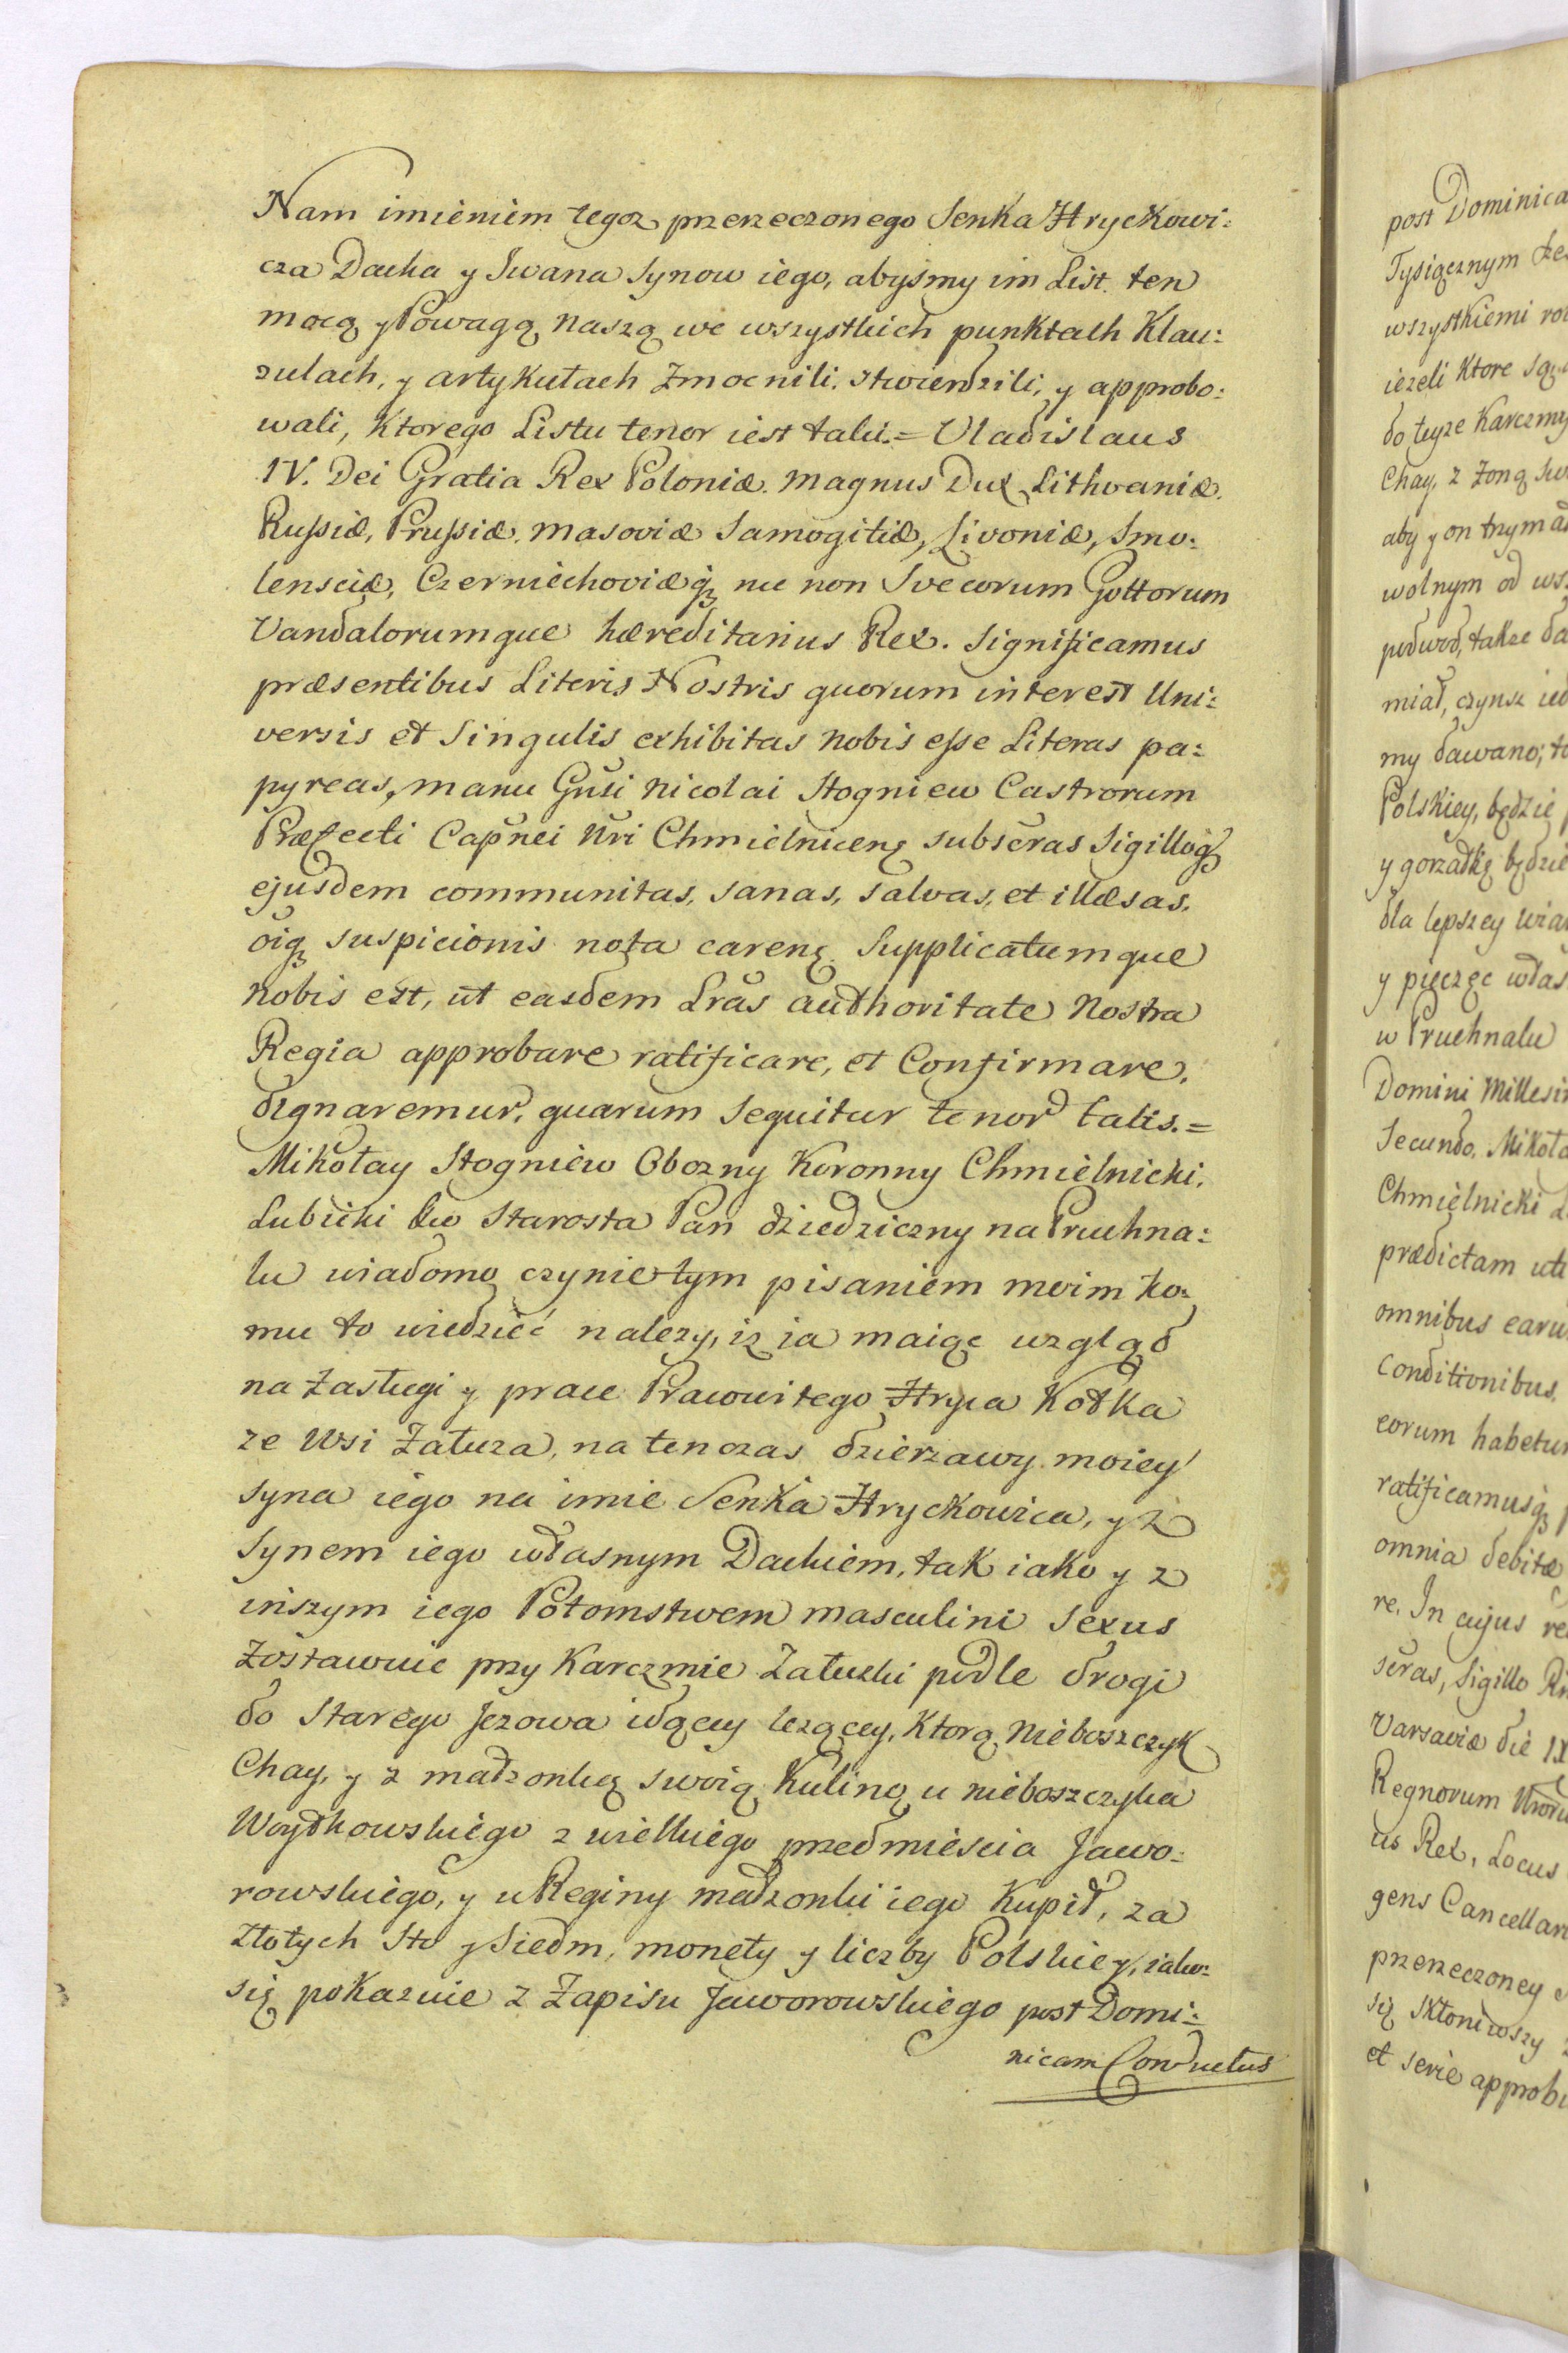 Nam imieniem tegoz przerzeczonego Senka Hryckowi:
cza Dacka y Iwana Synow iego, abyśmy im List ten
mocą y Powagą naszą we wszystkich punktach Klau:
zulach, y artykułach Zmocnili, Stwierdzili, y approbo:
wali, Ktorego Listu tenor iest taki.= Vladislaus
IV. Dei Gratia Rex Poloniæ. Magnus Dux Lithvaniæ.
Rußiæ, Prußiæ, Masoviæ Samogitiæ, Livoniæ, Smo:
lensciæ, Czerniechoviæq́ꝫ nec non Svecorum Gottorum
Vandalorumque hæreditarius Rex. Significamus
præsentibus Literis Nostris quorum interest Uni:
versis et Singulis exhibitas nobis eße Literas pa:
pyreas, manu Gn̄si Nicolai Stogniew Castrorum
Præfecti Capn̄ei Nr̄i Chmielnicen̨ subscras Sigilloq́ꝫ
ejusdem communitas, sanas, salvas, et illæsas,
oi̅q́ꝫ suspicionis nota caren̨. Supplicatumque
nobis est, ut easdem Lr̄as authoritate Nostra
Regia approbare ratificare, et Confirmare,
dignaremur, quarum sequitur tenor talis.=
Mikołay Stogniew Obozny Koronny Chmielnicki,
Lubicki Starosta Pan dziedziczny na Pruchna:
lu wiadomo czynie tym pisaniem moim ko:
mu to wiedzieć nalezy, iz ia maiąc wzgląd
na Zasługi y prace Pracowitego Hryca Kotka
ze Wsi Załuza, na tenczas dzierzawy moiey
syna iego na imie Senka Hryckowica, y z
Synem iego własnym Dackiem, tak iako y z
inszym iego Potomstwem masculini sexus
Zostawuie przy Karczmie Załuzki podle drogi
do Starego Jezowa idącey lezącey, Ktorą Nieboszczyk
Chay, y z małzonką swoią Kuliną u nieboszczyka
Woytkowskiego z wielkiego przedmieścia Jawo:
rowskiego, y u Reginy małzonki iego Kupił, za
Złotych Sto y Siedm, monety y liczby Polskiey, iako:
się pokazuie z Zapisu Jaworowskiego post Domi:
nicam Conductus
post Dominica
Tysiącznym
wszystkiemi
iezeli Ktore
do teyze Karczmy
Chay, z Zoną
aby y on trzymał
wolnym od
podwod, takze
miał, czynsz
my dawano;
Polskiey, będzie
y gorzałkę będzie
dla lepszey
y pieczęc
w Pruchnalu
Domini
Secundo.
Chmielnicki
prædictam
omnibus
Conditionibus.
eorum
ratificamusq́ꝫ
omnia debitæ
re. In cujus
scras, Sigillo
Varsaviæ die
Regnorum
us Rex, Locus
gens
przerzeczoney
się skłoniwszy
et serie